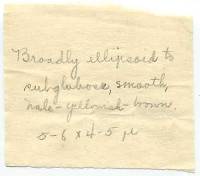 Broadly ellipsoid to
subglobose, smooth,
pale-yellowish-brown.
5-6 x 4-5 μ